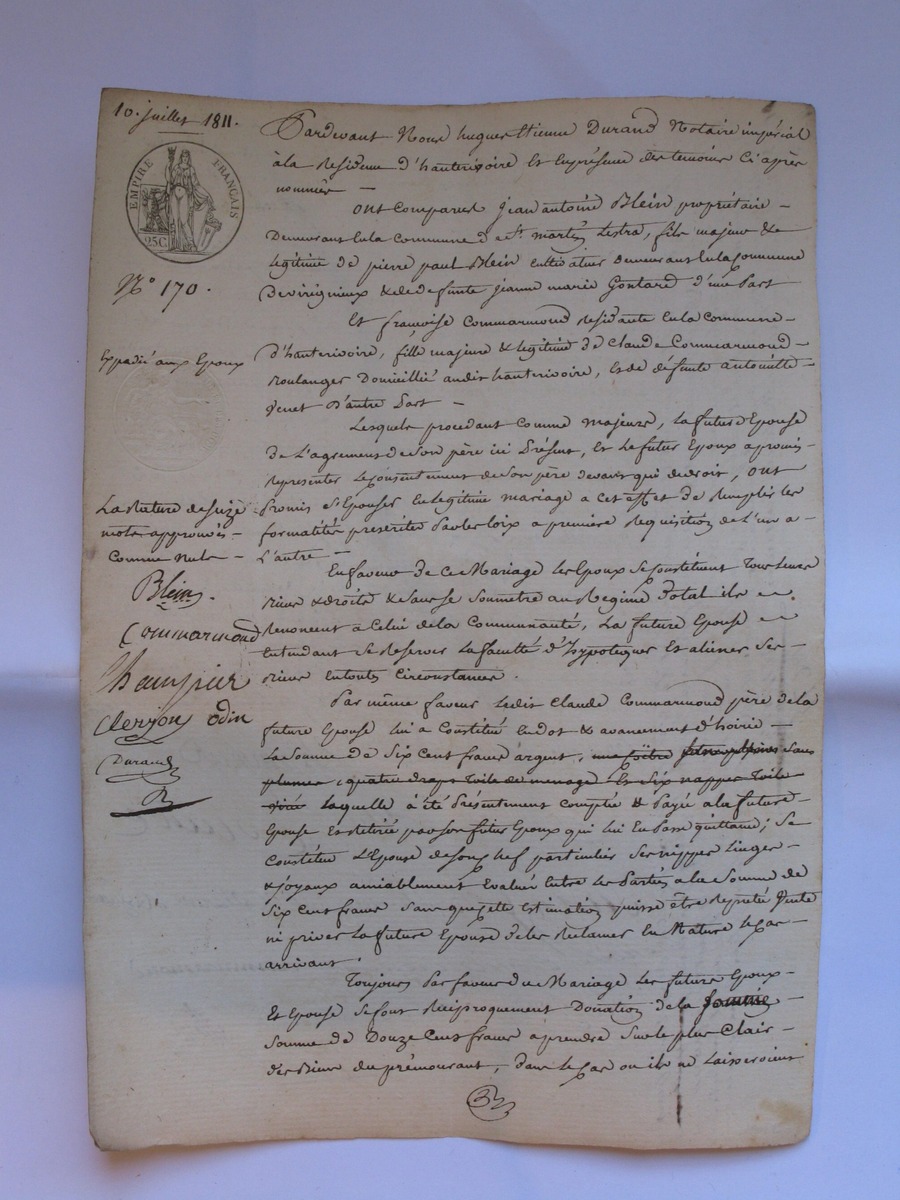 10. juillet 1811.
EMPIRE FRANÇAIS
25C
N° 170.
Expedié aux Epoux
La Rature de seize
mots approuvés
Comme nuls
Blein.
Commarmond
Clerjon Odin
Durand
Pardevant Nous hugues Etienne Durand Notaire impérial
à la Residence d'hauterivoire Et En présence des temoins Ci après
nommés —
Ont Comparus jean antoine Blein propriétaire —
Demeurant En la Commune de St. martin Lestra, fils majeur & le
legitime de pierre paul Blein Cultivateur demeurant En la Commune
de virigneux & de defunte jeanne marie Gontard d'une Part
Et françoise Commarmond Residante En la Commune —
d'hauterivoire, fille majeure & legitime de Claude Commarmond —
Boulanger Domicillié audit hauterivoire, Et de défunte antoinette
venet D'autre Part —
Lesquels procedant Comme majeurs, La future Epouse
de L'agrement de Son père ici Présent, Et Le futur Epoux a promis —
Representer Le Consentement de Son père devant qui de droit, Ont
Promis S'Epouser En Legitime mariage a cet Effet de Remplir les
formalités prescrites Par les loix a première Requisition de L'un a —
L'autre —
En faveur de Ce Mariage Les Epoux Se Constituent Tous Leurs
Biens & droits & Sans Se Soumettre au Regime Dotal ils —
Renoncent a Celui de la Communauté, La future Epouse —
Entendant Se Reserver La faculté d'hypotequer Et aliener Ses —
Biens En toutes Circonstances.
Par même faveur Ledit Claude Commarmond père de la
future Epouse lui a Constitué En dot & avancement d'hoirie —
La Somme de Six Cent francs argent, une Coëtre sans
plumes, quatre draps Toile de menage Et Six nappes Toile
Laquelle à été Présentement Comptée & Payée a la future —
Epouse Et Retirée par Son futur Epoux qui lui En Passe quittance; Se
Constitue L'Epouse de Son Chef particulier Ses nippes Linges —
& joyaux amiablement Evalués Entre Les Parties a la Somme de
Six Cent francs Sans que Cette Estimation puisse être Reputée Vente
ni priver La future Epouse de les Reclamer En Nature le Cas —
arrivant.
Toujours Par faveur de Ce Mariage Les future Epoux —
Et Epouse Se font Reciproquement Donation de la Somme —
Somme de Douze Cent francs a prendre Sur le plus Clair —
des Biens du prémourant, dans le Cas ou ils ne Laisseroient